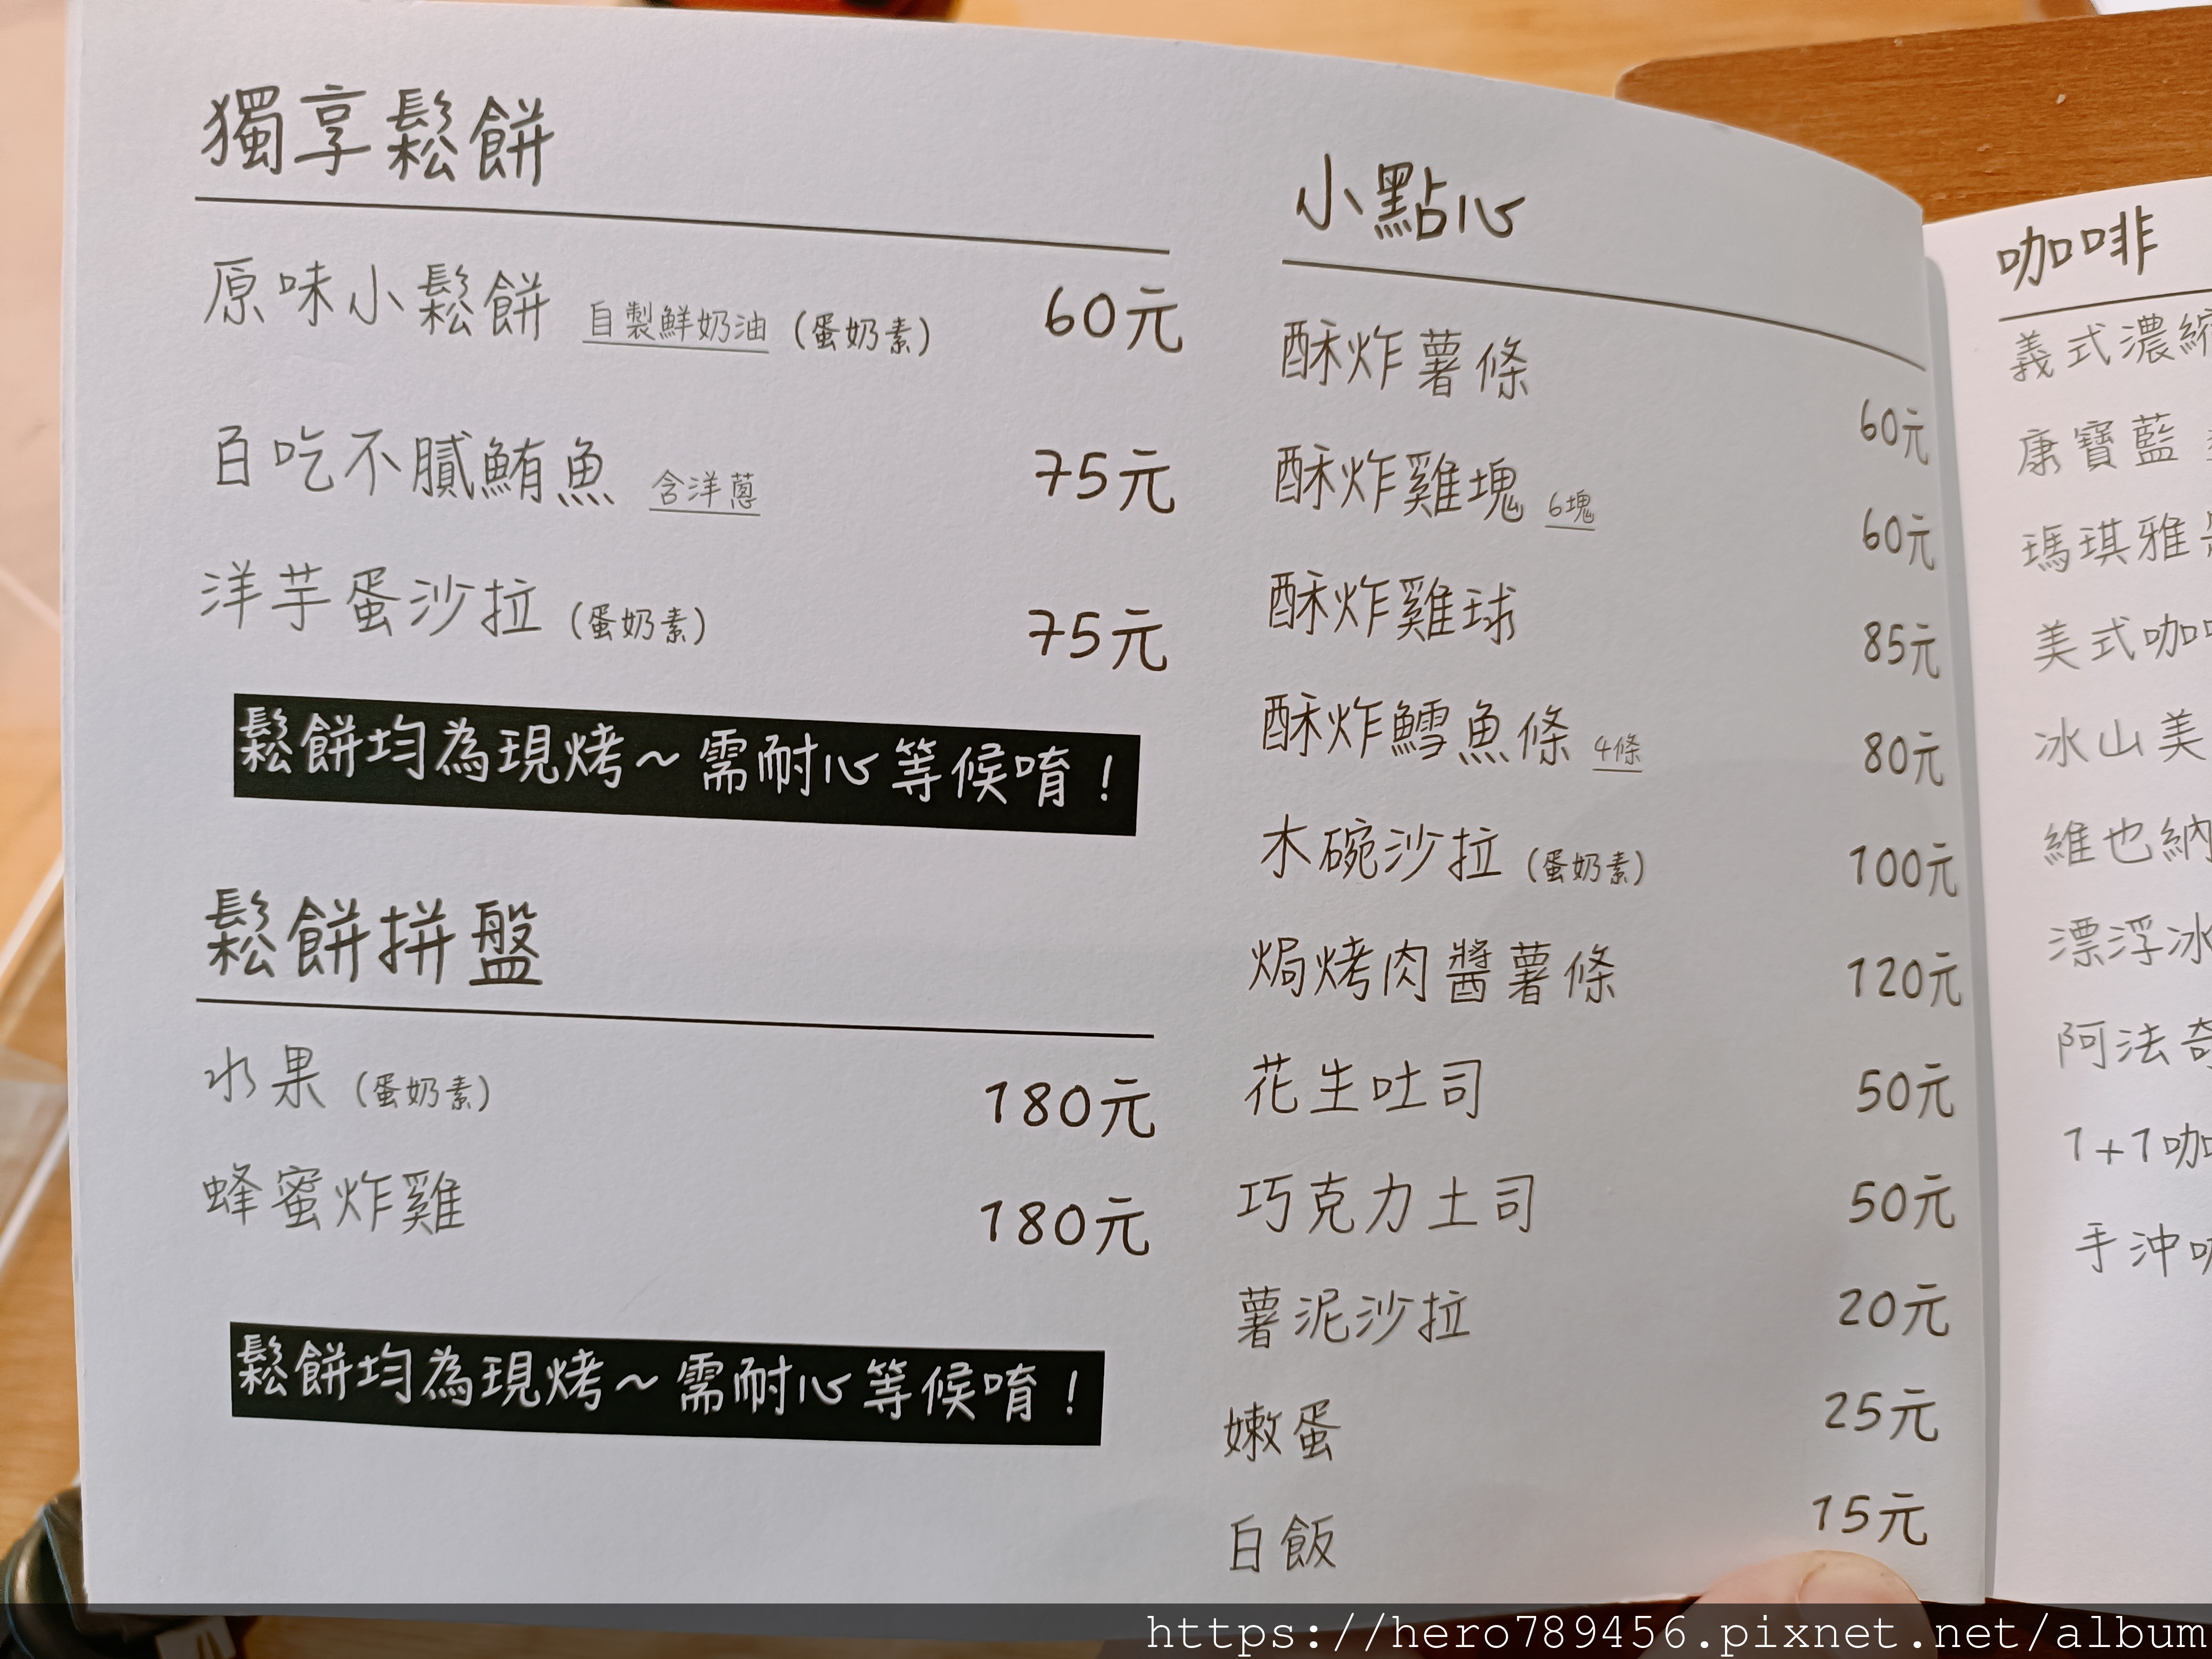 獨享鬆餅
原味小鬆餅 自製鮮奶油 (蛋奶素) 60元
百吃不膩鮪魚 含洋蔥 75元
洋芋蛋沙拉 (蛋奶素) 75元
鬆餅均為現烤~需耐心等候唷!
鬆餅拼盤
水果 (蛋奶素) 180元
蜂蜜炸雞 180元
鬆餅均為現烤~需耐心等候唷!
小點心
酥炸薯條 60元
酥炸雞塊 6塊 60元
酥炸雞球 85元
酥炸鱈魚條 4條 80元
木碗沙拉 (蛋奶素) 100元
焗烤肉醬薯條 120元
花生吐司 50元
巧克力土司 50元
薯泥沙拉 20元
嫩蛋 25元
白飯 15元
咖啡
義式濃縮
康寶藍
瑪琪雅
美式咖
冰山美
維也納
漂浮冰
阿法奇
1+1咖
手沖
https://hero789456.pixnet.net/album